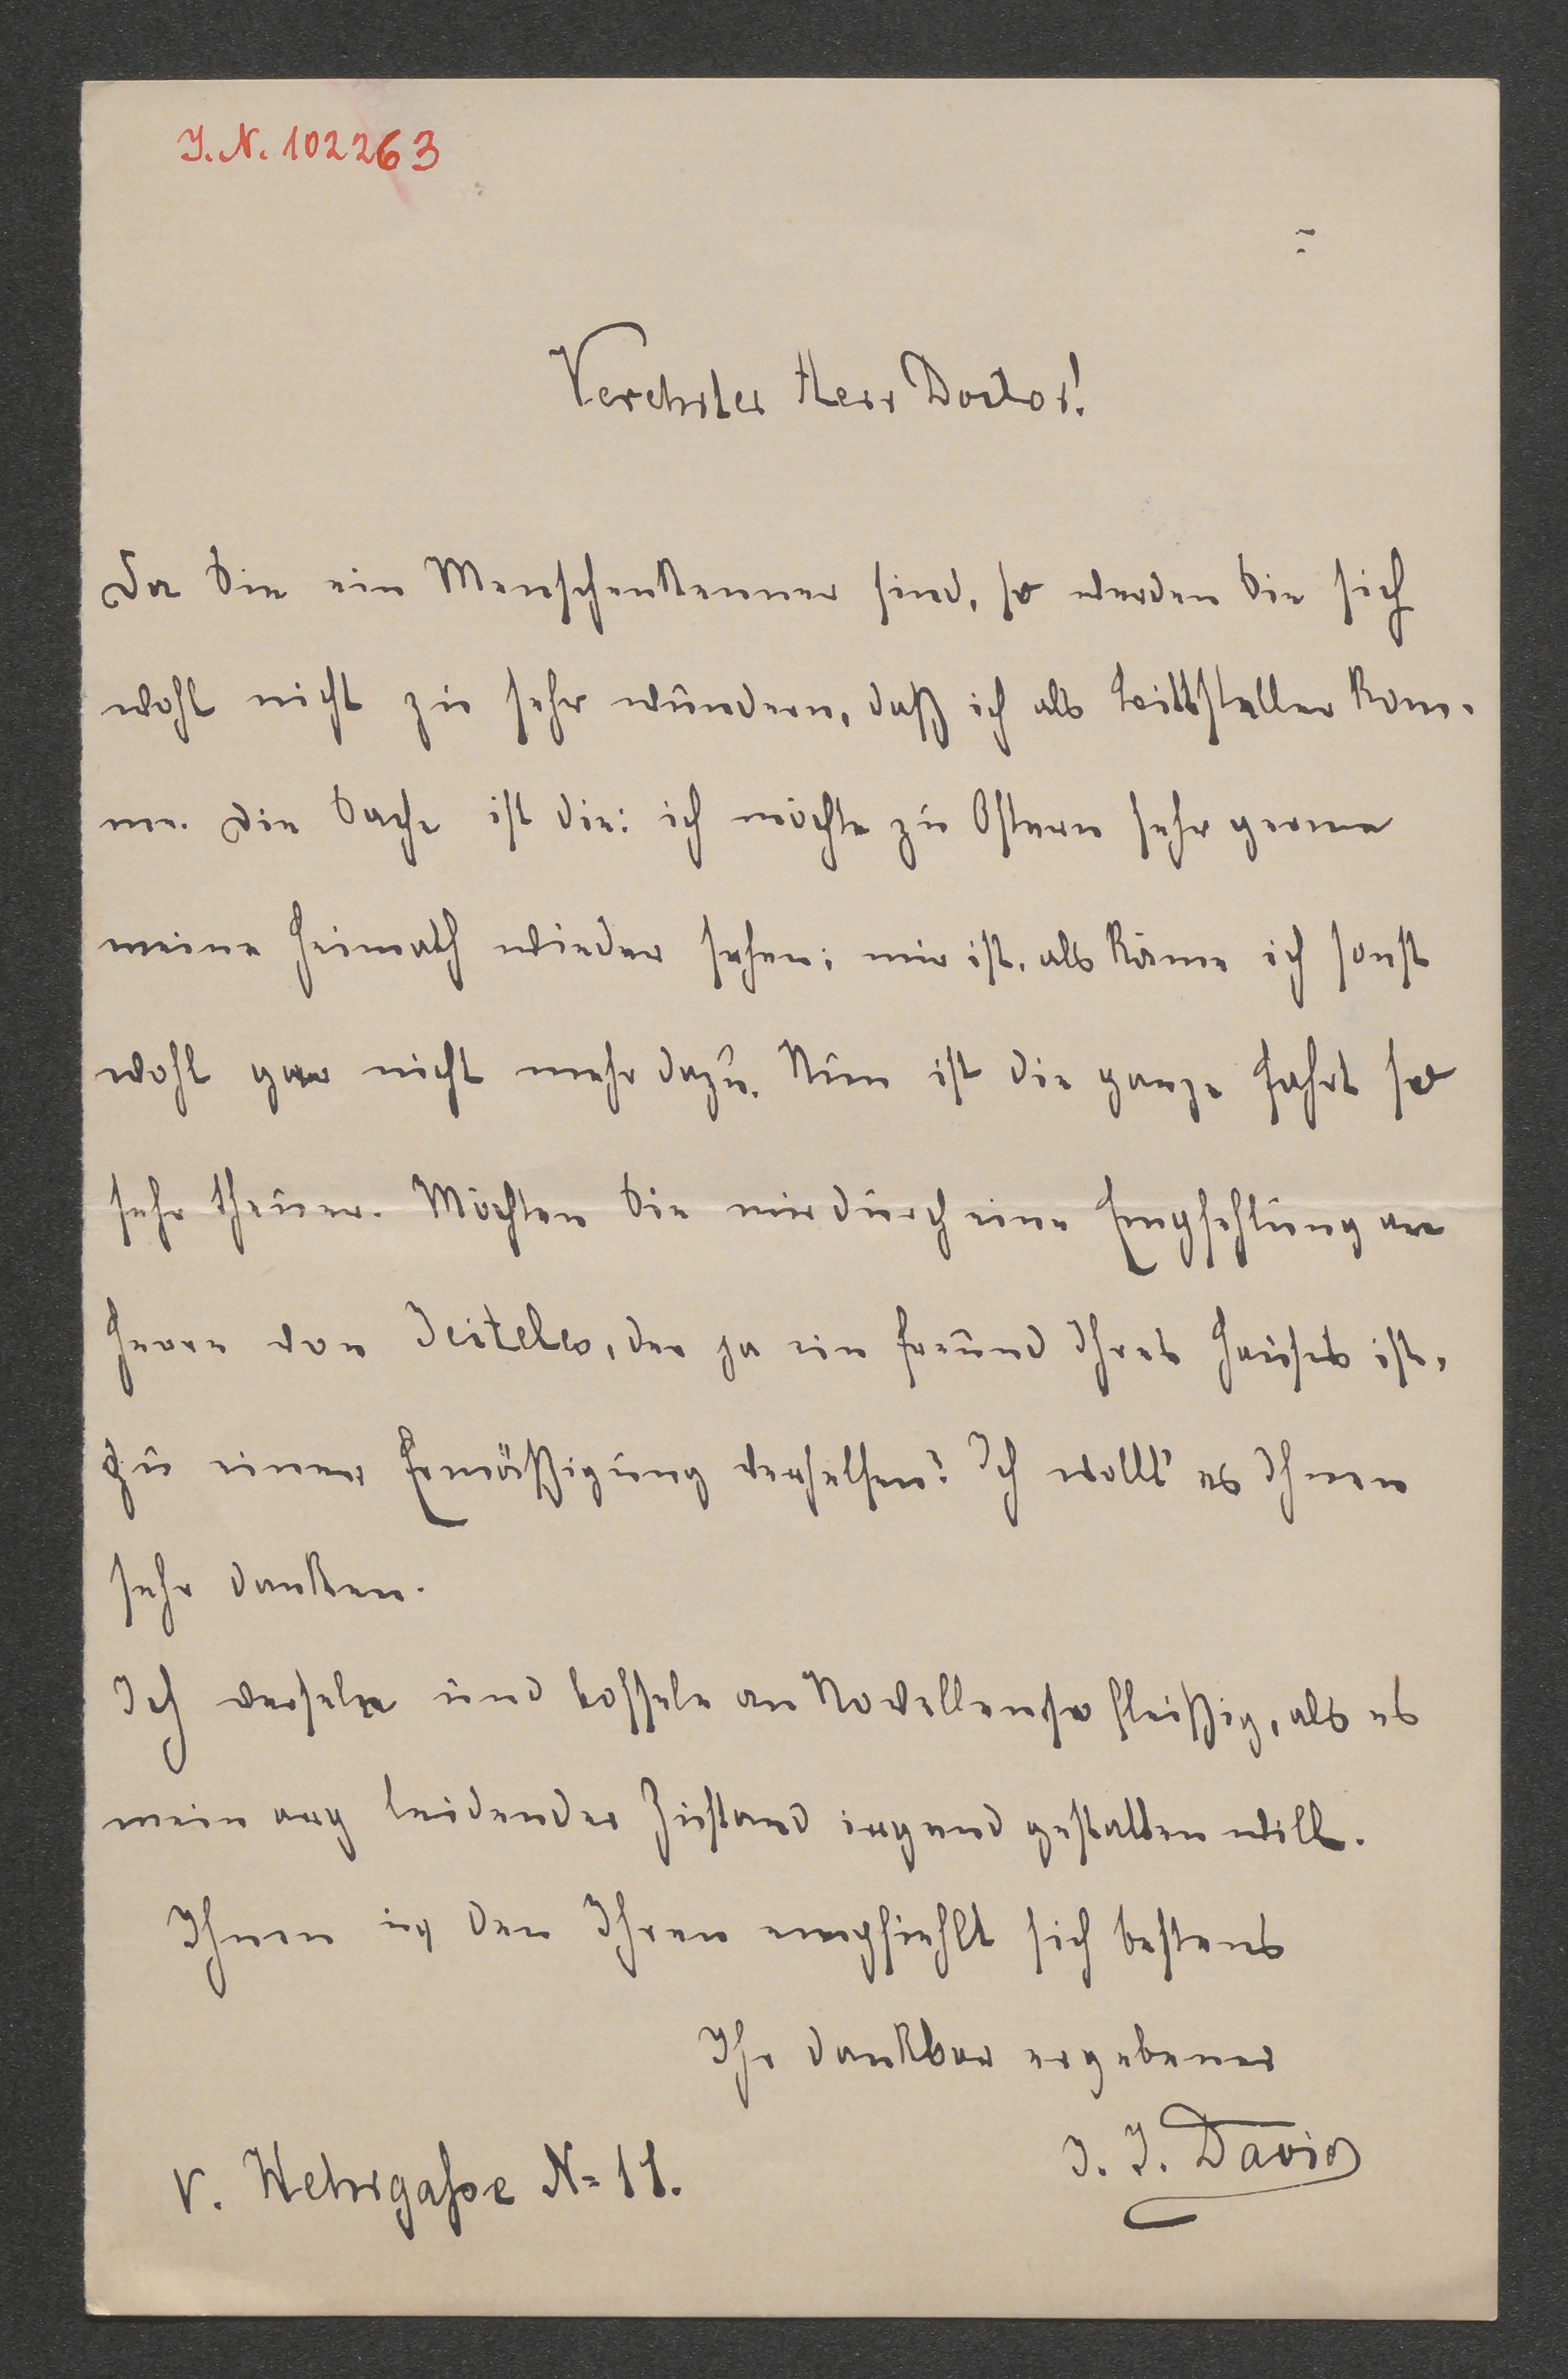 J. N. 102263
Verehrter Herr Doctor!
Da Sie ein Menschenkenner sind, so werden Sie sich
wohl nicht zu sehr wundern, daß ich als Bittsteller kom-
me. Die Sache ist die: ich möchte zu Ostern sehr gerne
meine Heimath wieder sehen; mir ist, als käme ich sonst
wohl gar nicht mehr dazu. Nun ist die ganze Fahrt so
sehr theuer. Möchten Sie mir durch eine Empfehlung an
Herrn von Jeiteles, der ja ein Freund Ihres Hauses ist,
zu einer Ermäßigung verhelfen? Ich wollt' es Ihnen
sehr danken.
Ich und bossele an Novellen so fleißig, als es
mein arg leidender Zustand irgend gestatten will.
Ihnen u den Ihren empfiehlt sich bestens
Ihr dankbar ergebener
J. J. David
V. Wehrgasse No 11.